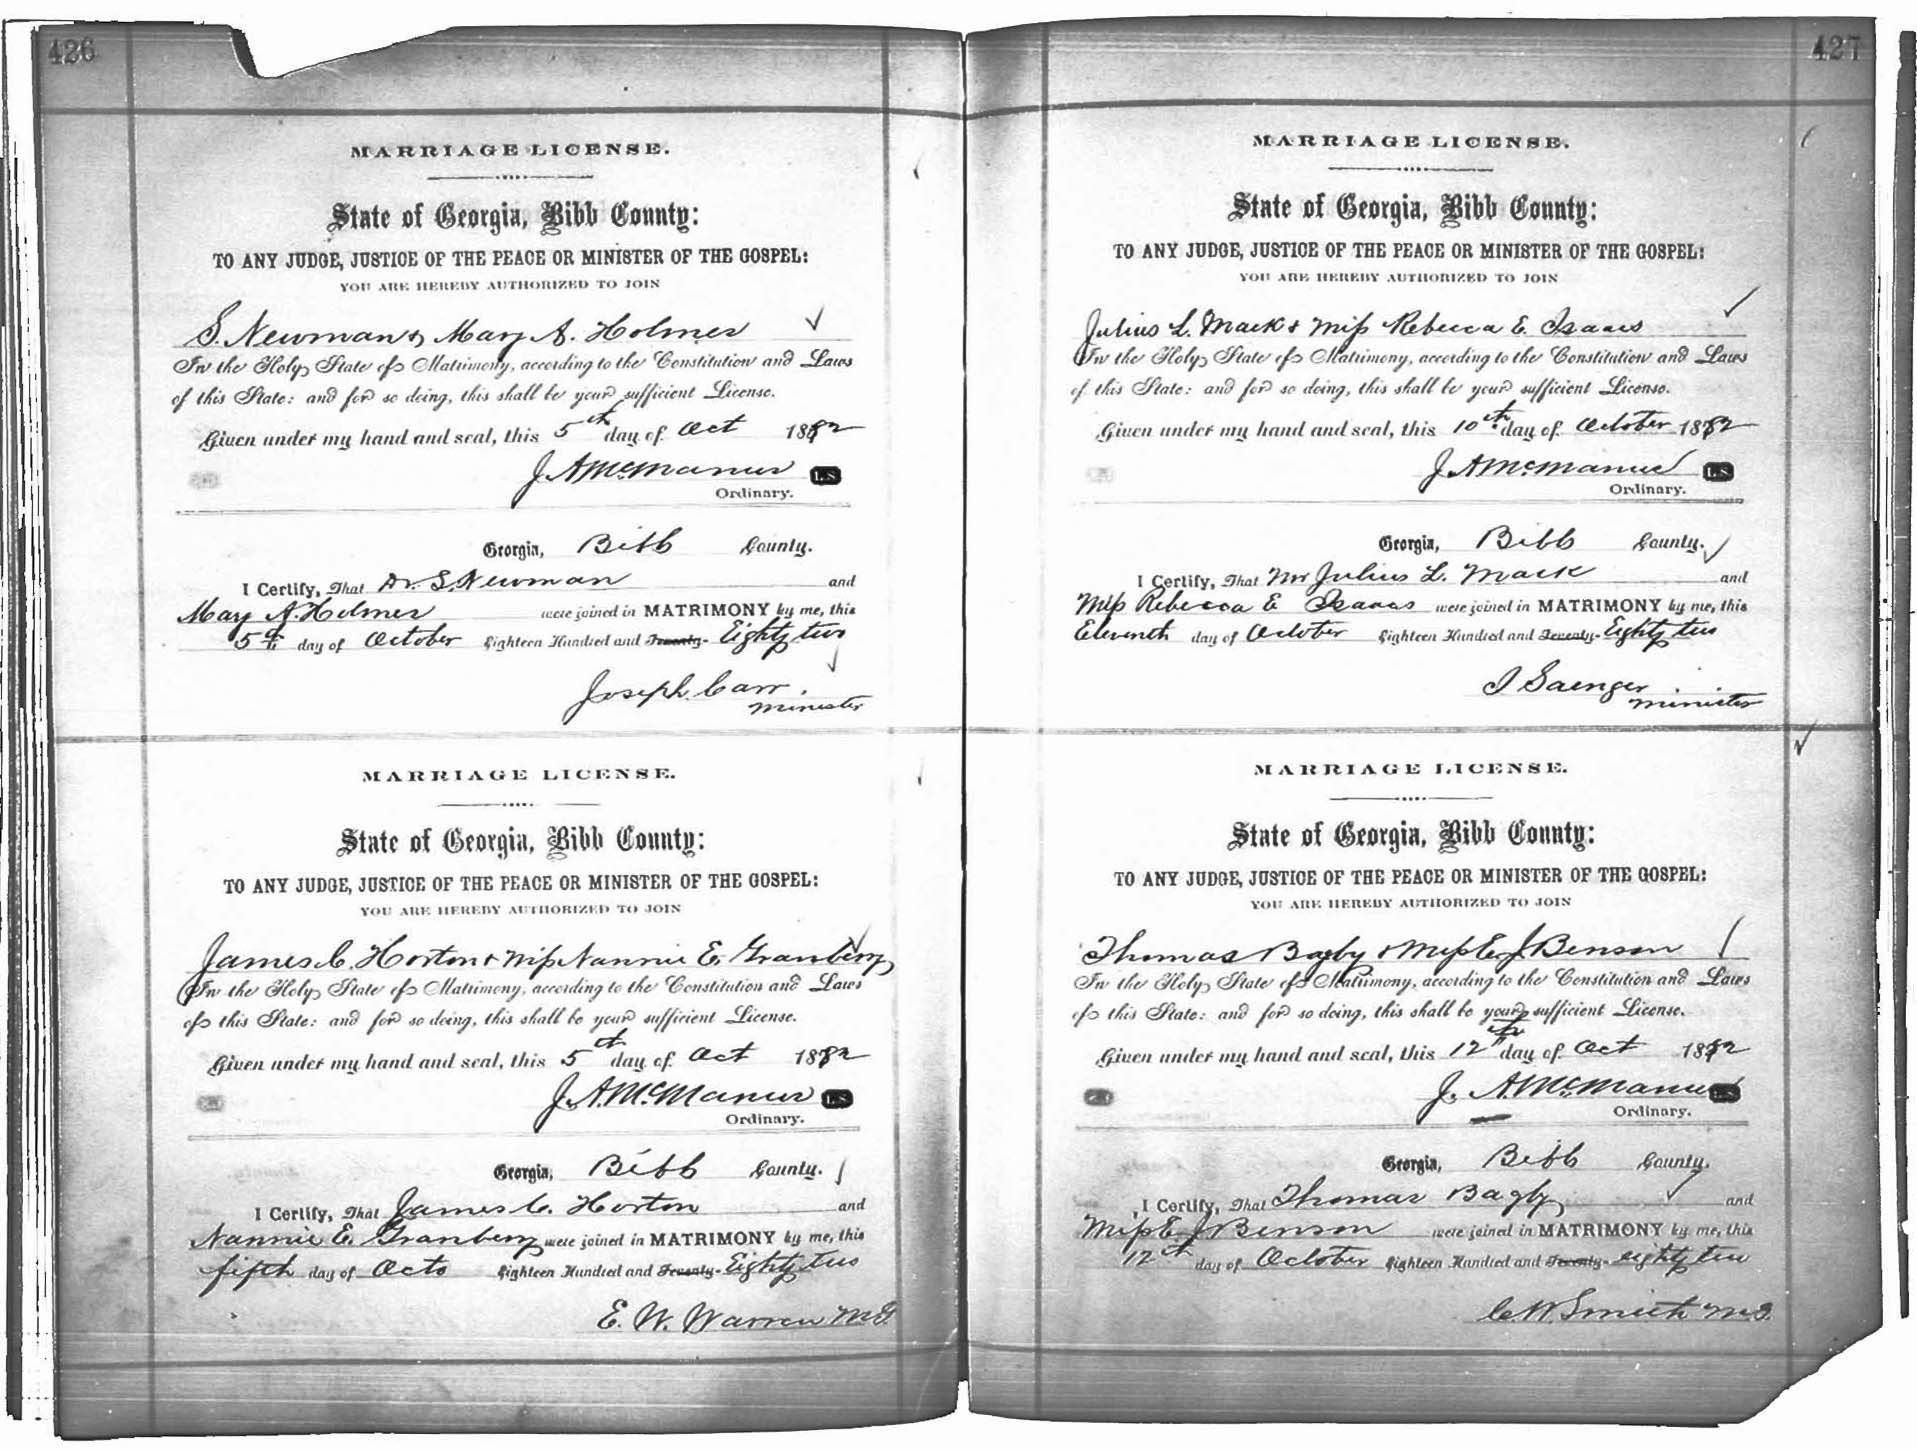 426
MARRIAGE LICENSE.
State of Georgia, Bibb County:
TO ANY JUDGE, JUSTICE OF THE PEACE OR MINISTER OF THE GOSPEL:
YOU ARE HEREBY AUTHORIZED TO JOIN
S. Newman & Mary A. Holmes
In the Holy State of Matrimony, according to the Constitution and Laws
of this State: and for so doing, this shall be your sufficient License.
Given under my hand and seal, this 5th day of Oct 1882
J A McManus L.S.
Ordinary.
Georgia, Bibb County.
I Certify, That Dr. S. Newman and
Mary A. Holmes were joined in MATRIMONY by me, this
5th day of October Eighteen Hundred and Seventy- Eighty two
Joseph Carr.
Minister
MARRIAGE LICENSE.
State of Georgia, Bibb County:
TO ANY JUDGE, JUSTICE OF THE PEACE OR MINISTER OF THE GOSPEL:
YOU ARE HEREBY AUTHORIZED TO JOIN
James C. Horton & Miss Nannie E. Granbery
In the Holy State of Matrimony, according to the Constitution and Laws
of this State: and for so doing, this shall be your sufficient License.
Given under my hand and seal, this 5th day of Oct 1882
J. A. McManus L.S.
Ordinary.
Georgia, Bibb County.
I Certify, That James C. Horton and
Nannie E. Granbery were joined in MATRIMONY by me, this
fifth day of Octo Eighteen Hundred and Seventy- Eighty two
E. W. Warren M.G.
427
MARRIAGE LICENSE.
State of Georgia, Bibb County:
TO ANY JUDGE, JUSTICE OF THE PEACE OR MINISTER OF THE GOSPEL:
YOU ARE HEREBY AUTHORIZED TO JOIN
Julius L. Mack & Miss Rebecca E. Isaacs
In the Holy State of Matrimony, according to the Constitution and Laws
of this State: and for so doing, this shall be your sufficient License.
Given under my hand and seal, this 10th day of October 1882
J A McManus L.S.
Ordinary.
Georgia, Bibb County.
I Certify, That Mr Julius L. Mack and
Miss Rebecca E Isaacs were joined in MATRIMONY by me, this
Eleventh day of October Eighteen Hundred and Seventy- Eighty two
I Saenger
Minister
MARRIAGE LICENSE.
State of Georgia, Bibb County:
TO ANY JUDGE, JUSTICE OF THE PEACE OR MINISTER OF THE GOSPEL:
YOU ARE HEREBY AUTHORIZED TO JOIN
Thomas Bagby & Miss E J Benson
In the Holy State of Matrimony, according to the Constitution and Laws
of this State: and for so doing, this shall be your sufficient License.
Given under my hand and seal, this 12th day of Oct 1882
J. A McManus L.S.
Ordinary.
Georgia, Bibb County.
I Certify, That Thomas Bagby and
Miss E J Benson were joined in MATRIMONY by me, this
12th day of October Eighteen Hundred and Seventy- eighty two
C. W. Smith M.G.